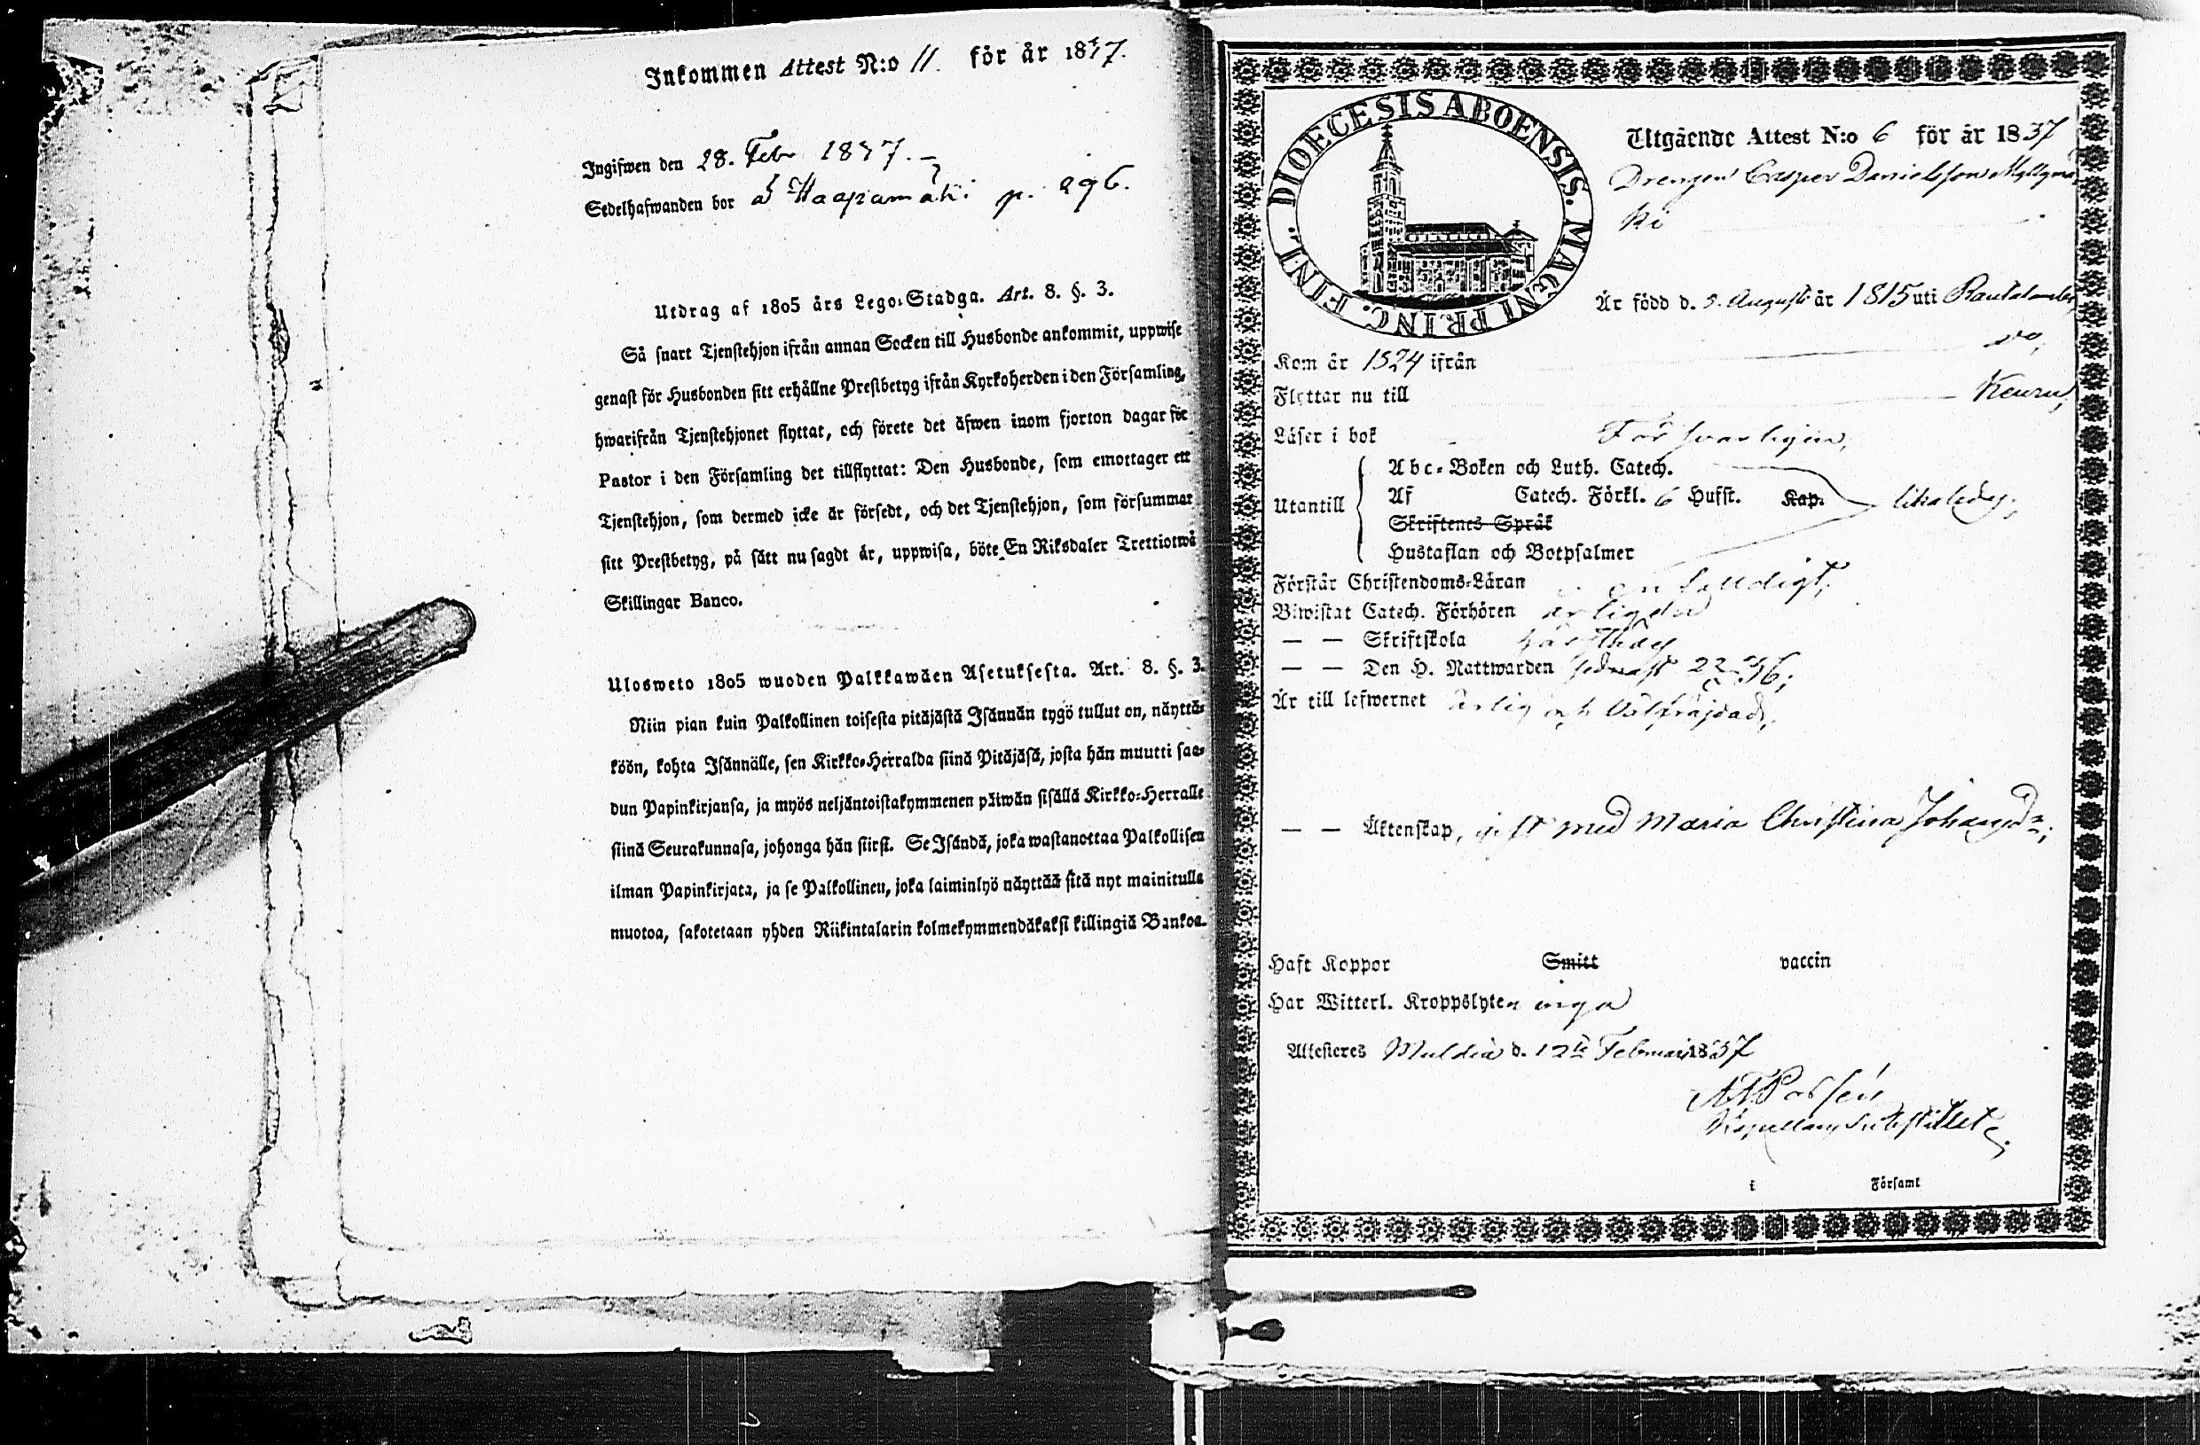 Inkommen Attest N:o 11. för år 1837.
Ingifwen den 28. Febr 1837.
Sedelhafwanden bor å Haapamäki p. 296.
Utdrag af 1805 års Lego-Stadga. Art. 8. §. 3.
Så snart Tjenstehjon ifrån annan Socken till Husbonde ankommit, uppwise
genast för Husbonden sitt erhållne Prestbetyg ifrån Kyrkoherden i den Församling,
hwarifrån Tjenstehjonet flyttat, och förete det äfwen inom fjorton dagar för
Pastor i den Församling det tillflyttat: Den Husbonde, som emottager ett
Tjenstehjon, som dermed icke är försedt, och det Tjenstehjon, som försummar
sitt Prestbetyg, på sätt nu sagdt är, uppwisa, böte En Riksdaler Trettiotwå
Skillingar Banco.
Ulosweto 1805 wuoden Palkkawäen Asetuksesta. Art. 8. §. 3.
Niin pian kuin Palkollinen toisesta pitäjästä Isännän tygö tullut on, näyttä-
köön, kohta Isännälle, sen Kirkko-Herralda siinä Pitäjäsä, josta hän muutti saa-
dun Papinkirjansa, ja myös neljäntoistakymmenen päiwän sisällä Kirkko-Herralle
siinä Seurakunnasa, johonga hän siirst. Se Isändä, joka wastanottaa Palkollisen
ilman Papinkirjata, ja se Palkollinen, joka laiminlyö näyttää sitä nyt mainitulla
muotoa, sakotetaan yhden Riikintalarin kolmekymmendäkaksi killingiä Bankoa.
DIOECESIS ABOENSIS. MAGNI PRINC. FINL.
Utgående Attest N:o 6 för år 1837
Drengen Casper Danielsson Myllymä
ki
Är född d. 9. Augusti år 1815 uti Rautalambi
Kom år 1824 ifrån
Flyttar nu till Keuru,
Läser i bok Försvarligen,
Abc-Boken och Luth. Catech.
Utantill Af Catech. Förkl. 6 Hufst. Kap. likaledes;
Skriftenes Språk
Hustaflan och Botpsalmer
Förstår Christendoms-Läran enfaldigt;
Biwistat Catech. Förhören årligen
— — Skriftskola
— — Den H. Nattwarden sednast 36;
Är till lefwernet ärlig och välfräjdad;
— — Äktenskap, gift med Maria Christina Johansd:r;
Haft Koppor Smitt vaccin
Har Witterl. Kroppslyten inga
Attesteres Muldia d. 12te Februarii 1837
Kapellans Substitut
i Församl